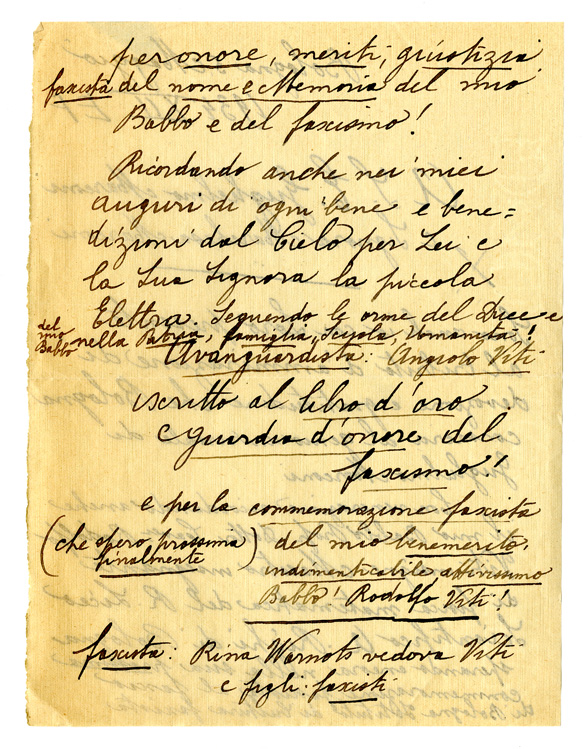 per onore, meriti, giustizia
fascista del nome e Memoria del mio
Babbo e del fascismo!
Ricordando anche nei miei
auguri di ogni bene e bene=
dizioni dal Cielo per Lei e
la Sua Signora la piccola
Elettra. Seguendo le orme del Duce e
del mio Babbo nella Patria, famiglia, Scuola, Umanità!
Avanguardista: Angiolo Viti
iscritto al libro d'oro
e guardia d'onore del
fascismo!
e per la commemorazione fascista
(che spero prossima finalmente) del mio benemerito,
indimenticabile attivissimo
Babbo! Rodolfo Viti!
fascista: Rina Warnots vedova Viti
e figli: fascisti